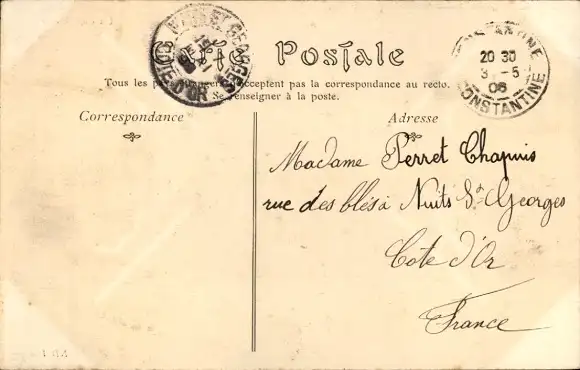 Carte Postale
Tous les pays étrangers n'acceptent pas la correspondance au recto.
Se renseigner à la poste.
CONSTANTINE
20 30
3 - 5
06
CONSTANTINE
COTE D'OR
Correspondance
Adresse
Madame Perret Chapuis
rue des blés à Nuits St Georges
Cote d'Or
France